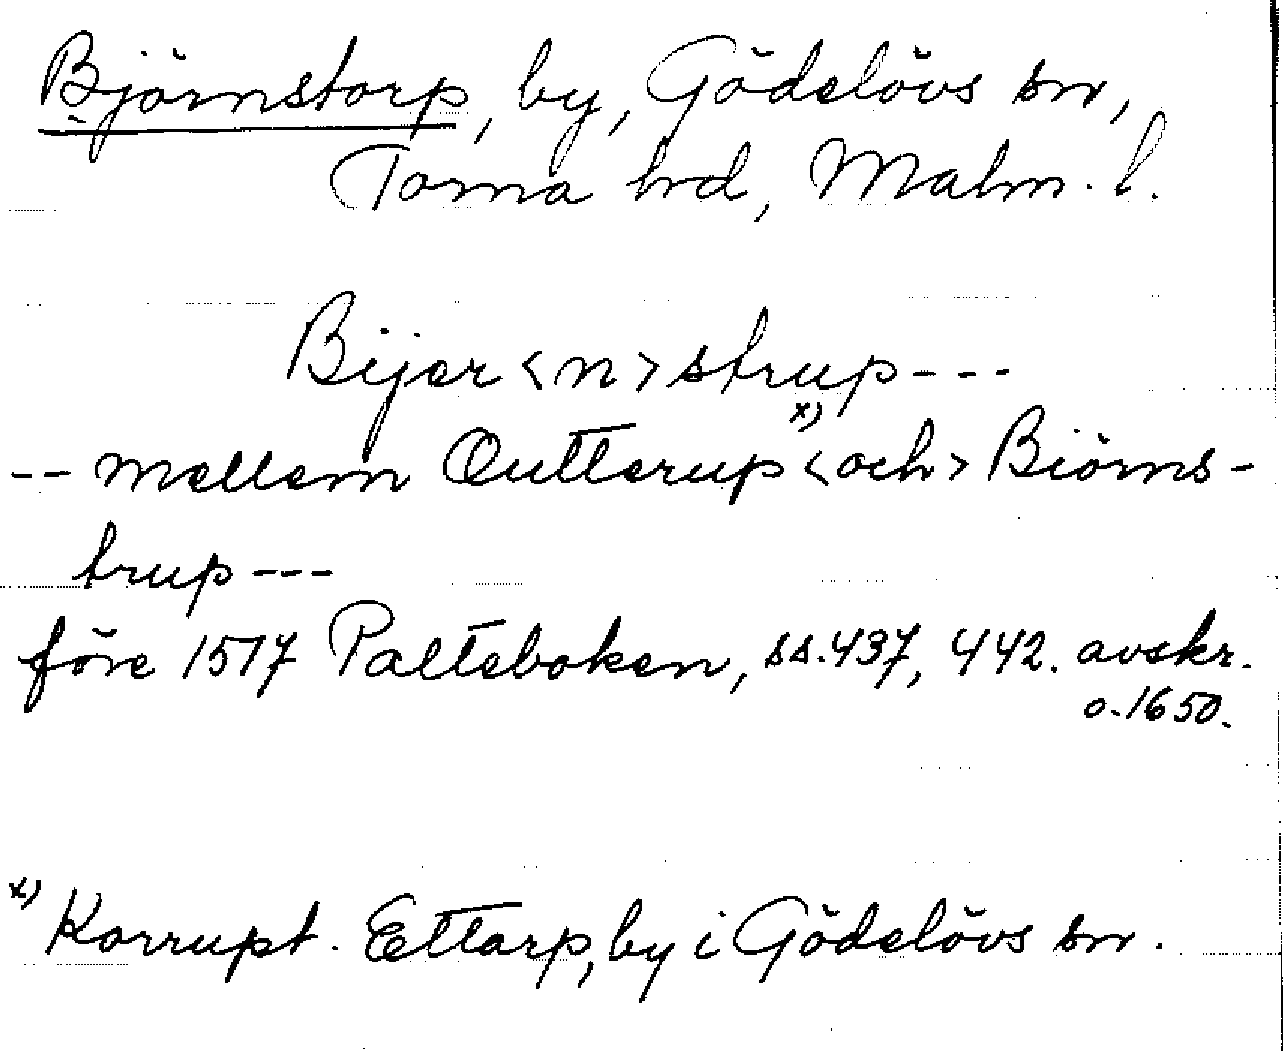 Björnstorp, by, Gödelövs sn,
Torna hd, Malm. l.
Bijer<n>strup---
-- mellem Outterup x) <och> Biörns-
trup---
före 1517 Palteboken, ss. 437, 442. avskr.
o. 1650.
x) Korrupt. Ettarp, by i Gödelövs sn.